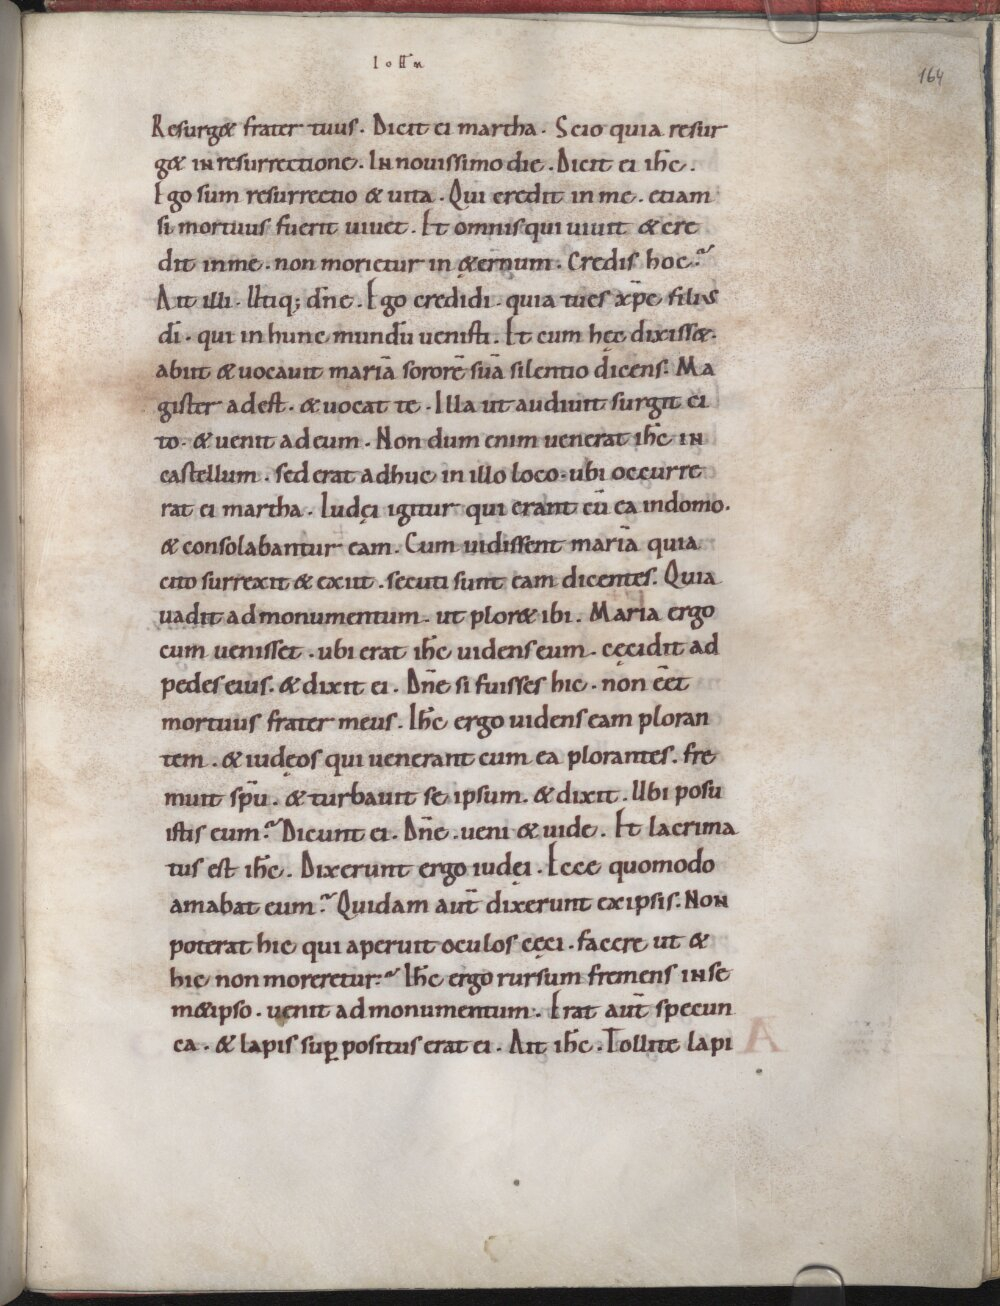 Ioħn
164
Resurg& frater tuus. Dicit ei martha. Scio quia resur
g& in resurrectione. In nouissimo die. Dicit ei ihc̄.
Ego sum resurrectio & uita. Qui credit in me. etiam
si mortuus fuerit uiuet. Et omnis qui uiuit & cre
dit in me. non morietur in &ernum. Credis hoc?
Ait illi. Utiq; dn̄e. Ego credidi. quia tu es xp̄c filius
dī. qui in hunc mundū uenisti. Et cum hęc dixiss&.
abiit & uocauit mariā sororē suā silentio dicens. Ma
gister adest. & uocat te. Illa ut audiuit surgit ci
to. & uenit ad eum. Non dum enim uenerat ihc̄ in
castellum. sed erat adhuc in illo loco. ubi occurre
rat ei martha. Iudęi igitur qui erant cū ea in domo.
& consolabantur eam. Cum uidissent mariā quia
cito surrexit & exiit. secuti sunt eam dicentes. Quia
uadit ad monumentum. ut plor& ibi. Maria ergo
cum uenisset. ubi erat ihc̄ uidens eum. cęcidit ad
pedes eius. & dixit ei. Dn̄e si fuisses hic. non eēt
mortuus frater meus. Ihc̄ ergo uidens eam ploran
tem. & iudęos qui uenerant cum ea plorantes. fre
muit spū. & turbauit se ipsum. & dixit. Ubi posu
istis eum? Dicunt ei. Dn̄e. ueni & uide. Et lacrima
tus est ihc̄. Dixerunt ergo iudęi. Ecce quomodo
amabat eum? Quidam aut̄ dixerunt ex ipsis. Non
poterat hic qui aperuit oculos cęci. facere ut &
hic non moreretur? Ihc̄ ergo rursum fremens in se
m&ipso. uenit ad monumentum. Erat aut̄ spelun
ca. & lapis suꝑpositus erat ei. Ait ihc̄. Tollite lapi